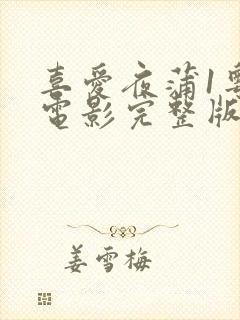 喜愛夜蒲1粵
電影完整版
姜雪梅